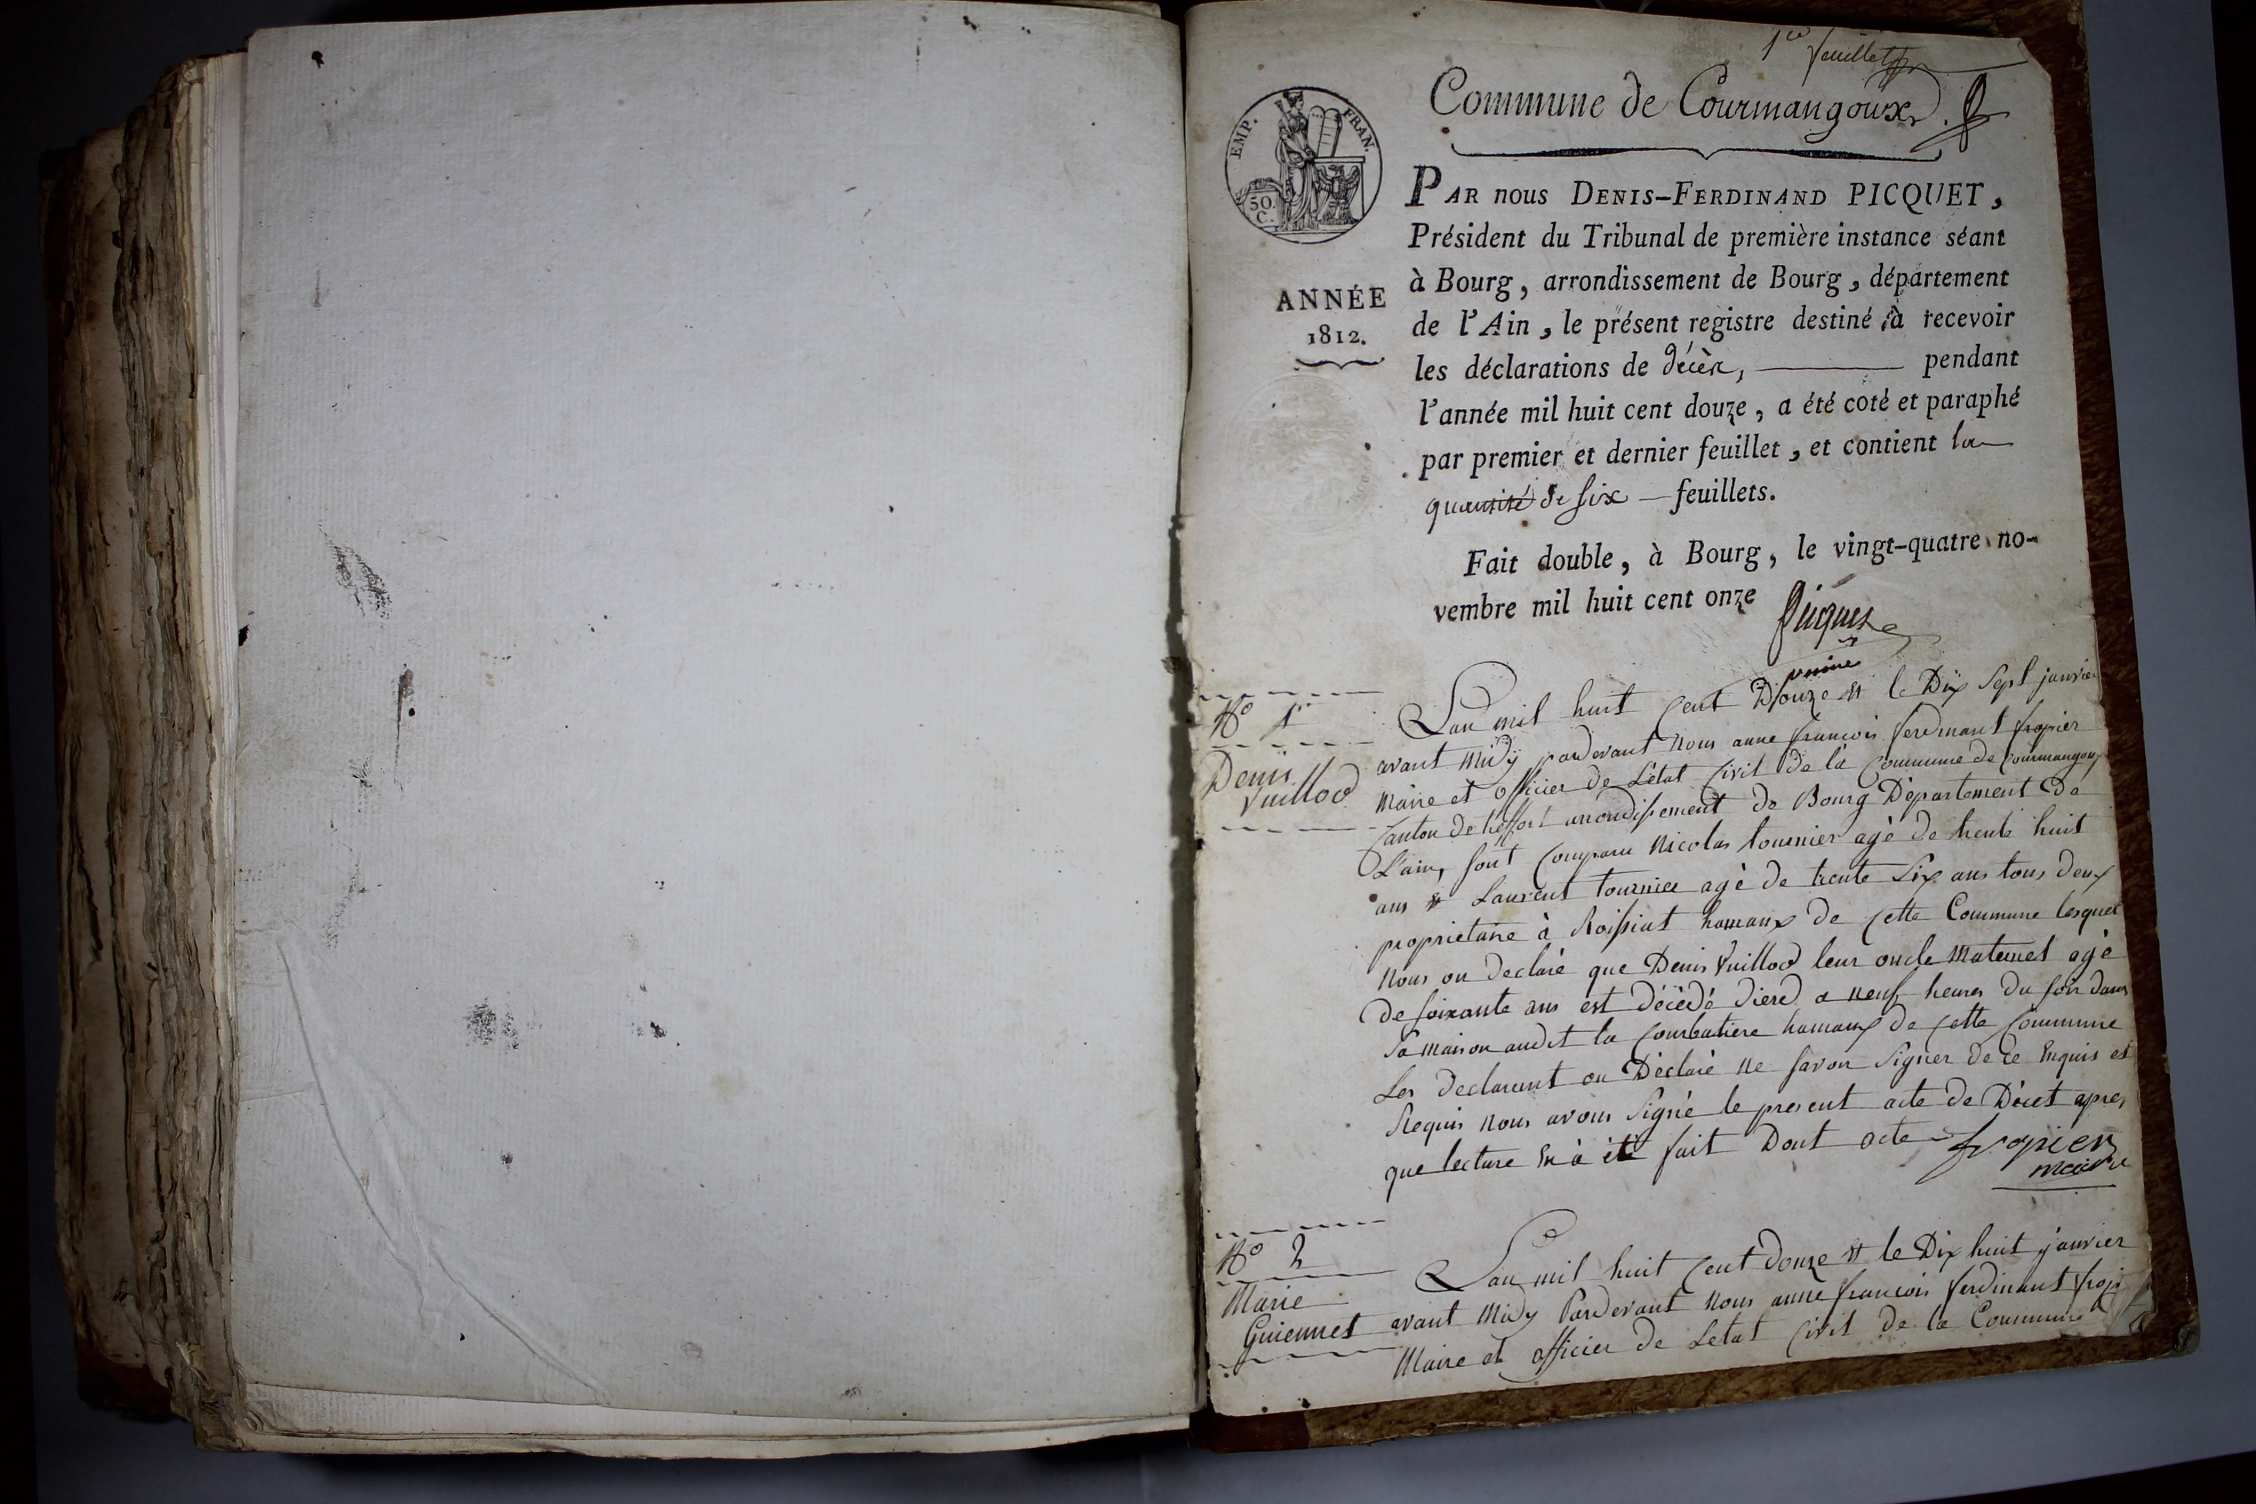 1er feuillet
Commune de Courmangoux.
EMP. FRAN.
50. C.
ANNÉE
1812.
PAR nous DENIS-FERDINAND PICQUET,
Président du Tribunal de première instance séant
à Bourg, arrondissement de Bourg, département
de l'Ain, le présent registre destiné à recevoir
les déclarations de décès, pendant
l'année mil huit cent douze, a été coté et paraphé
par premier et dernier feuillet, et contient la
quantité de six feuillets.
Fait double, à Bourg, le vingt-quatre no-
vembre mil huit cent onze
Picquet
No 1er
Denis
Vuillod
Lan mil huit Cent Douze et le Dix Sept janvier
avant Midy pardevant Nous anne francois ferdinant fropier
Maire et officier de Létat Civil de la Commune de Courmangoux
Canton de treffort arrondissement de Bourg Département De
L'ain, sont Comparu Nicolas tournier agé de trente huit
ans et Laurent tournier agé de trente Six ans tous deux
proprietaire à Roissiat hamaux de Cette Commune lesquel
Nous on declaré que Denis Vuillod leur oncle Maternel agé
de soixante ans est décédé dierd a neuf heures du soir dans
Sa maison audit la Courbatiere hamaux de Cette Commune
Les declarant on Déclaré ne savoir Signer de ce Enquis et
Requis nous avons Signé le present acte de Décet apres
que lecture En à été fait Dont acte fropier
maire
No 2
Marie
Guiennet
Lan mil huit Cent douze et le Dix huit janvier
avant Midy Pardevant Nous anne francois ferdinant fropi
Maire et officier de Letat Civil de la Commune